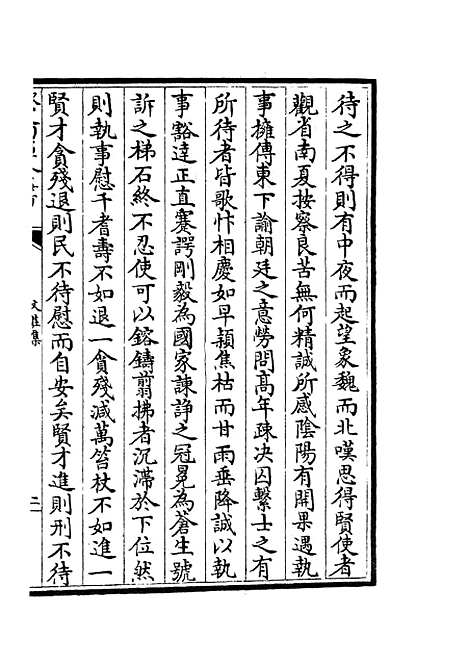 待之不得則有中夜而起望象魏而北嘆思得賢使者
觀省南夏按察良苦無何精誠所感陰陽有開果遇執
事擁傳東下諭朝廷之意勞問髙年疎决囚繫士之有
所待者皆歌忭相慶如早穎焦枯而甘雨垂降誠以執
事豁達正直蹇諤剛毅為國家諫諍之冠冕為蒼生號
訴之梯石終不忍使可以鎔鑄翦拂者沉滯於下位然
則執事慰千耆壽不如退一貪殘減萬笞杖不如進一
賢才貪殘退則民不待慰而自安矣賢才進則刑不待
文莊集
二